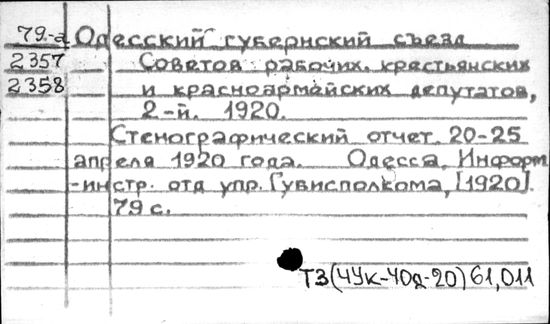 79-а Одесский губернский съезд
2357 Советов рабочих, крестьянских
2358 и красноармейских депутатов,
2-й. 1920.
Стенографический отчет. 20-25
апреля 1920 года. Одесса, Информ.
-инстр. отд упр. Губисполкома, [1920].
79 с.
ТЗ(4Ук-4Од-20)61,011